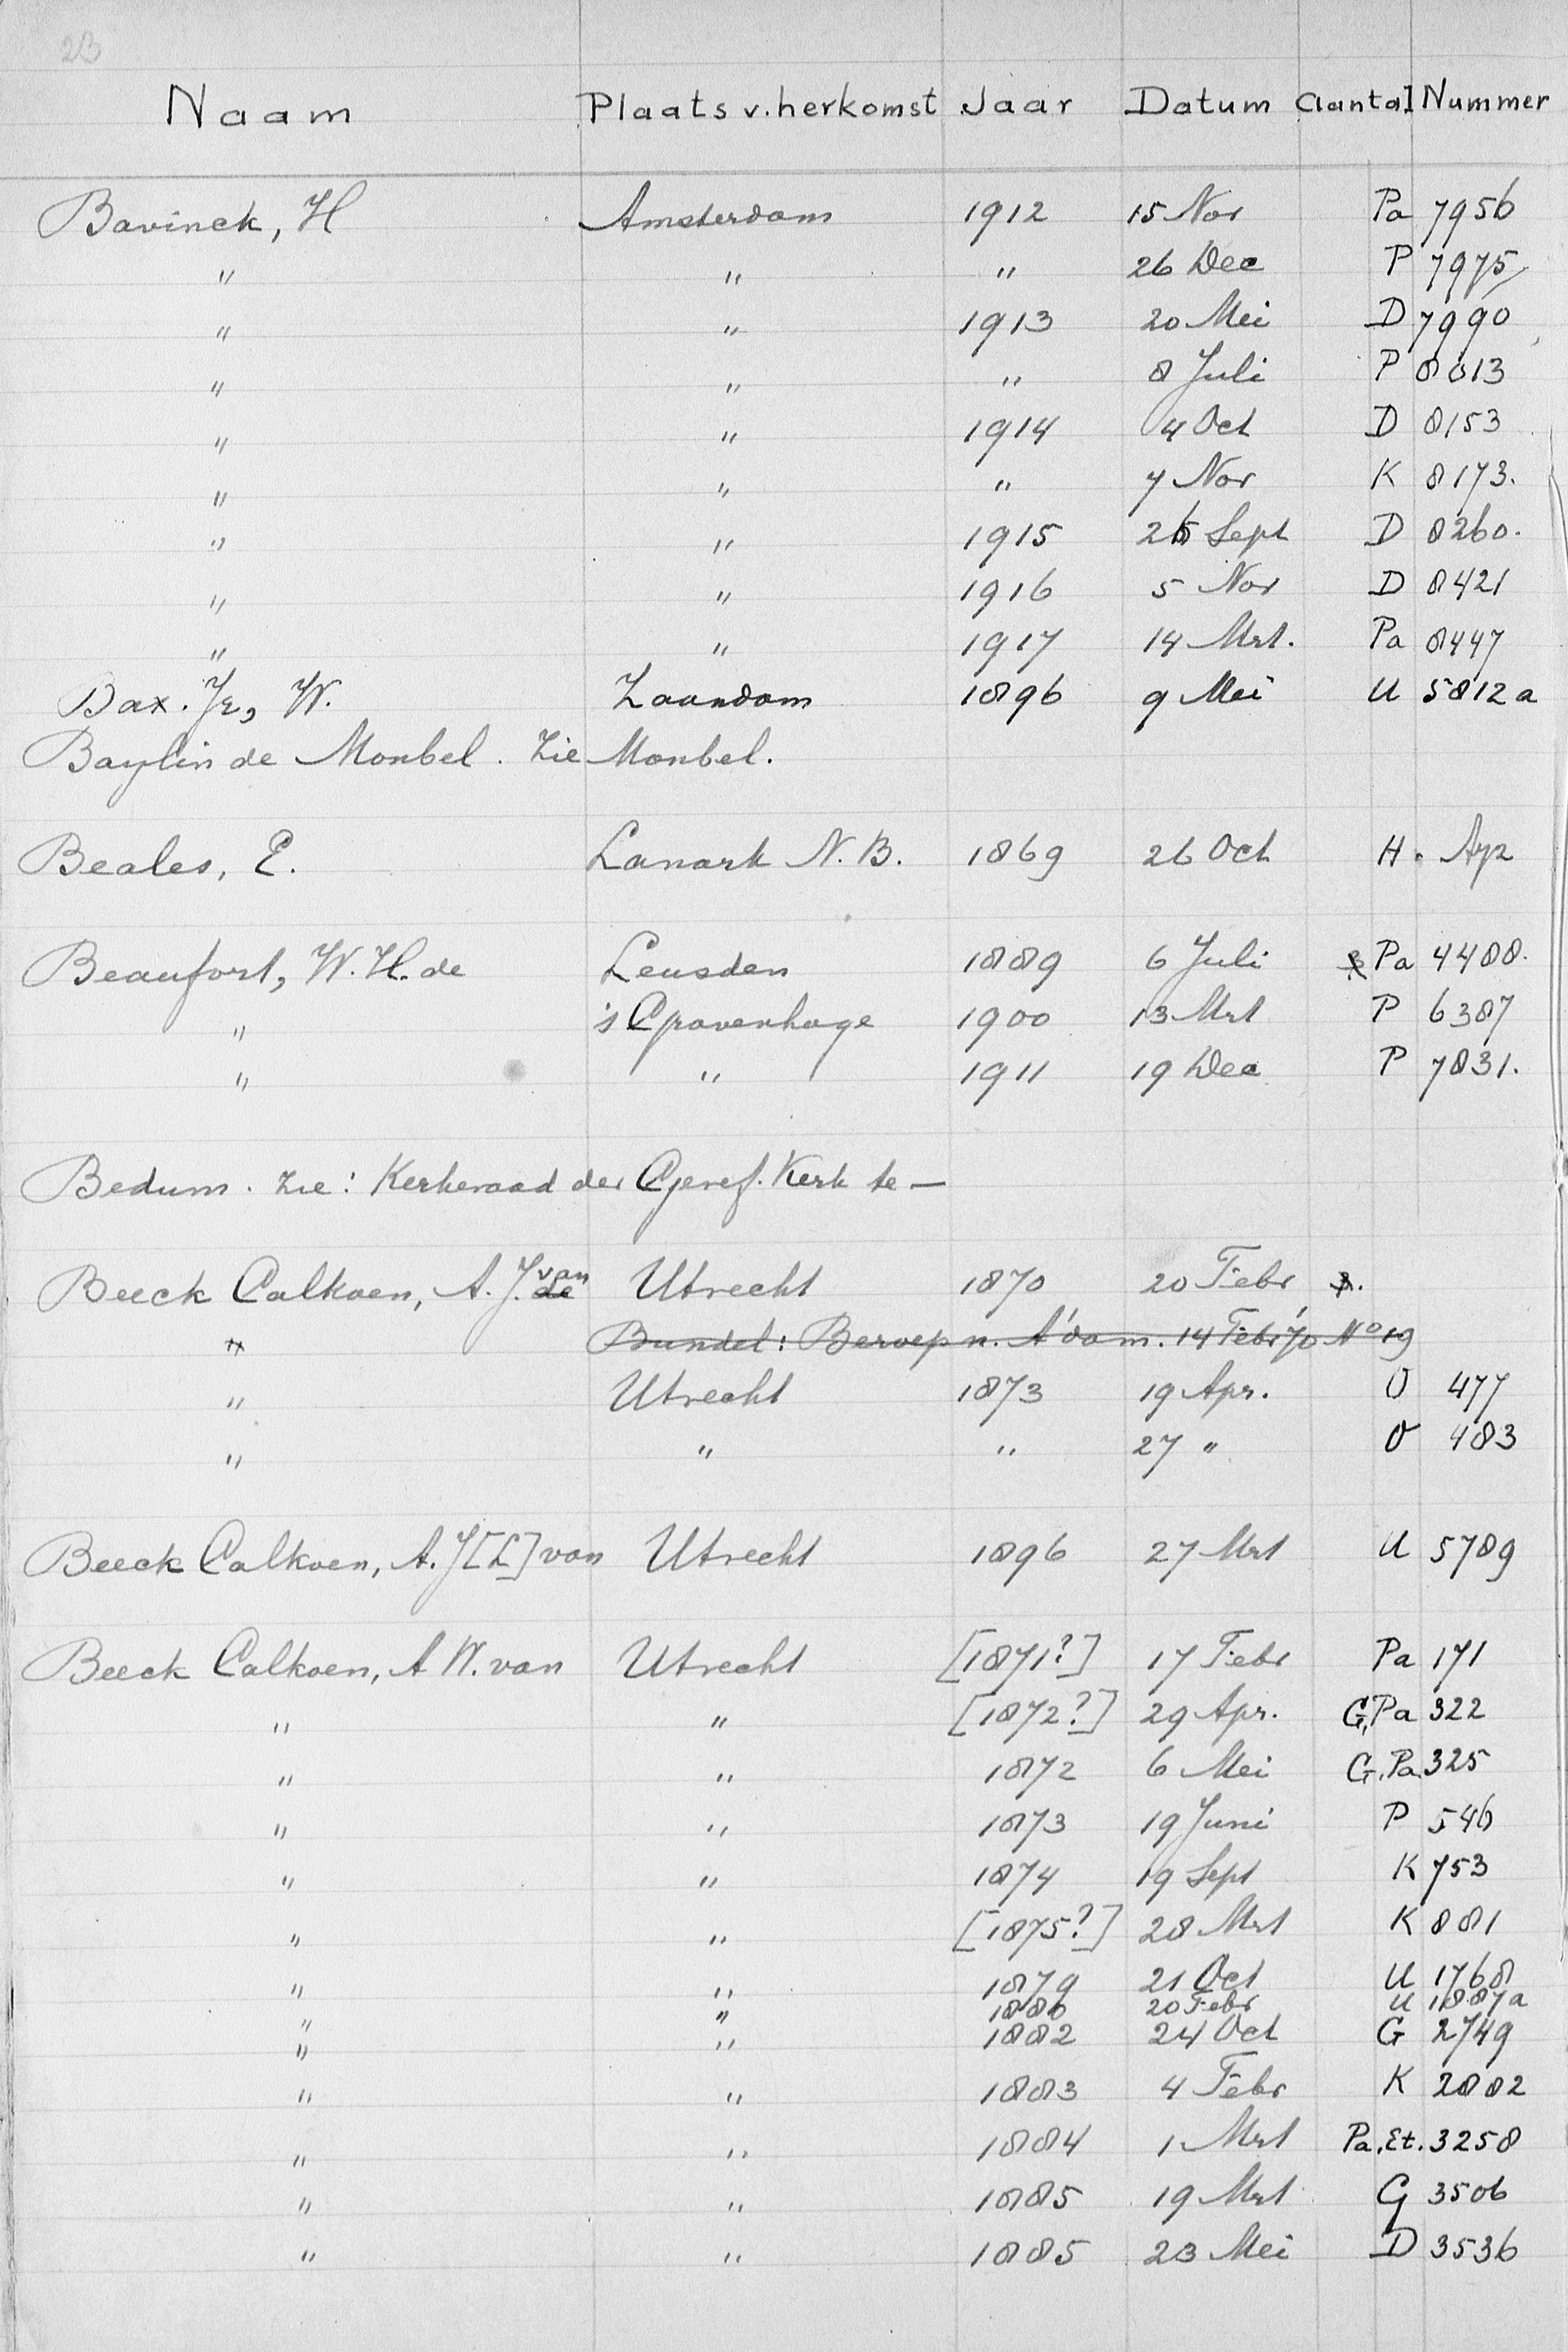 23
Naam Plaats v. herkomst Jaar Datum Aantal Nummer
Bavinck, H Amsterdam 1912 15 Nov Pa 7956
" " " 26 Dec P 7975
" " 1913 20 Mei D 7990
" " " 8 Juli P 8013
" " 1914 4 Oct D 8153
" " " 7 Nov K 8173.
" " 1915 26 Sept D 8260.
" " 1916 5 Nov D 8421
" " 1917 14 Mrt. Pa 8447
Bax. Jr, W. Zaandam 1896 9 Mei U 5812a
Baylin de Monbel. Zie Monbel.
Beales, E. Lanark N.B. 1869 26 Oct H.
Beaufort, W.H. de Leusden 1889 6 Juli Pa 4488.
" 's Gravenhage 1900 13 Mrt P 6387
" " 1911 19 Dec P 7831.
Bedum. Zie: Kerkeraad der Geref. Kerk te —
Beeck Calkoen, A.J. van de Utrecht 1870 20 Febr
" Bundel: Beroep n. A'dam. 14 Febr '70 No 19
" Utrecht 1873 19 Apr. O 477
" " " 27 " O 483
Beeck Calkoen, A.J [L] van Utrecht 1896 27 Mrt U 5789
Beeck Calkoen, A W. van Utrecht [1871?] 17 Febr Pa 171
" " [1872?] 29 Apr. G,Pa 322
" " 1872 6 Mei G.Pa. 325
" " 1873 19 Juni P 546
" " 1874 19 Sept K 753
" " [1875?] 28 Mrt K 881
" " 1879 21 Oct U 1768
" " 1880 20 Febr U 1887a
" " 1882 24 Oct G 2749
" " 1883 4 Febr K 2882
" " 1884 1 Mrt Pa.Et. 3258
" " 1885 19 Mrt G 3506
" " 1885 23 Mei D 3536